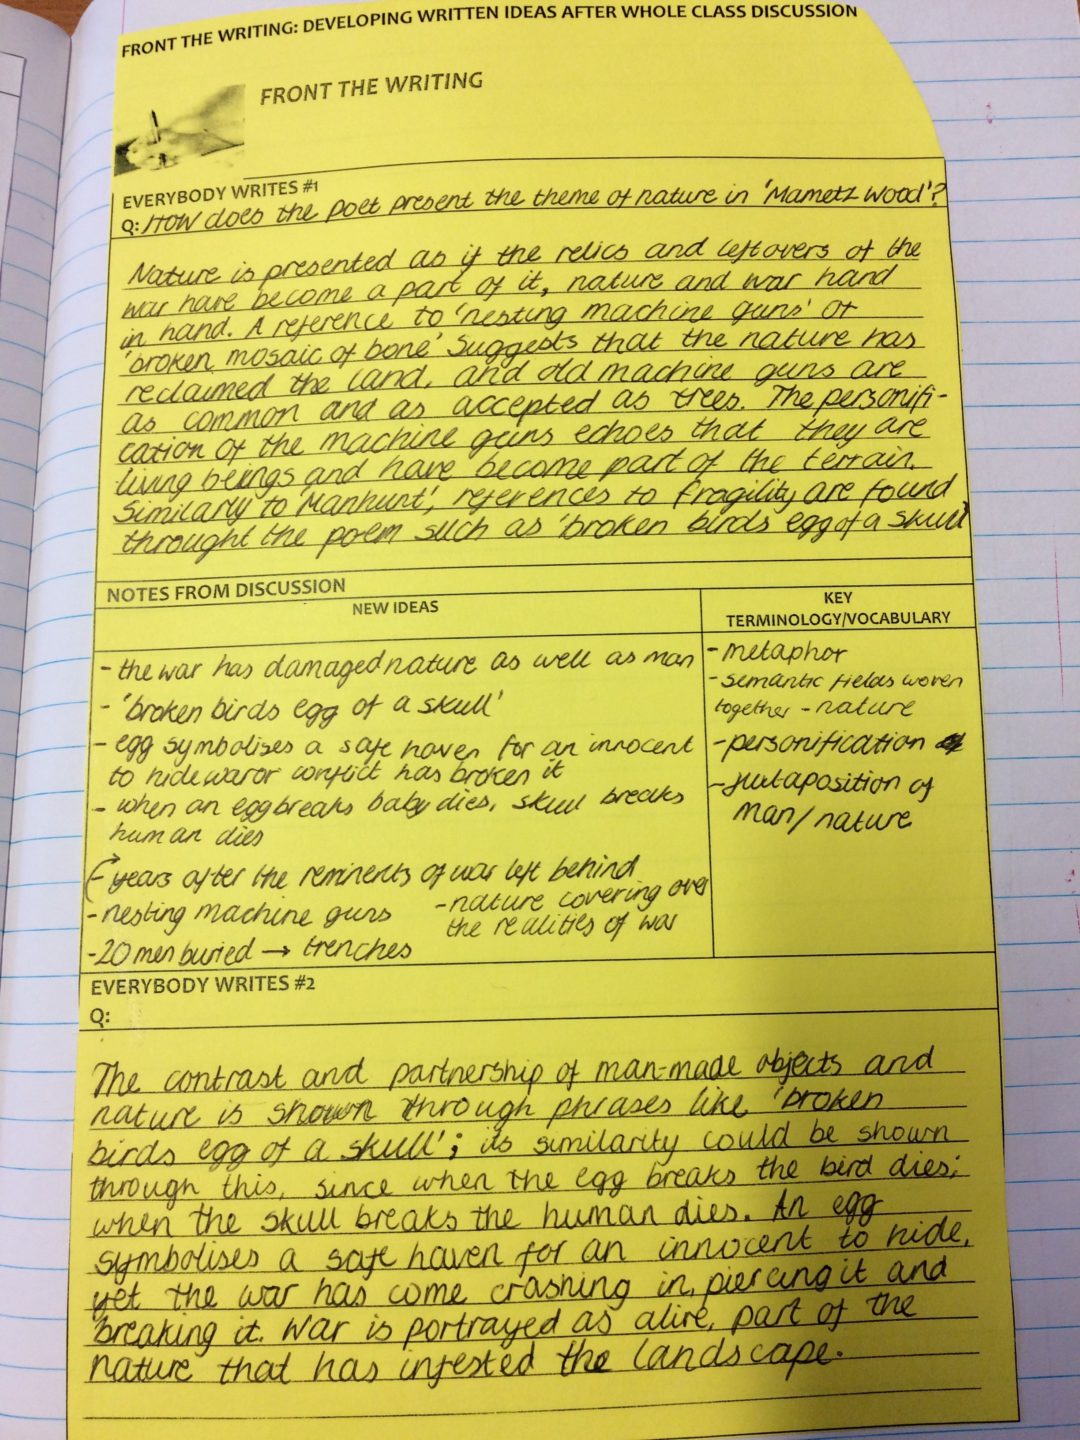 FRONT THE WRITING: DEVELOPING WRITTEN IDEAS AFTER WHOLE CLASS DISCUSSION
FRONT THE WRITING
EVERYBODY WRITES #1
Q: How does the poet present the theme of nature in 'Mametz Wood'?
Nature is presented as if the relics and leftovers of the
war have become a part of it, nature and war hand
in hand. A reference to 'nesting machine guns' or
'broken mosaic of bone' suggests that the nature has
reclaimed the land, and old machine guns are
as common and as accepted as trees. The personifi-
cation of the machine guns echoes that they are
living beings and have become part of the terrain.
Similarly to 'Manhunt', references to fragility are found
throught the poem such as 'broken birds egg of a skull'
NOTES FROM DISCUSSION
NEW IDEAS
- the war has damaged nature as well as man
- 'broken birds egg of a skull'
- egg symbolises a safe haven for an innocent
to hide war or conflict has broken it
- when an egg breaks baby dies, skull breaks
human dies
- years after the reminents of war left behind
- nesting machine guns
- nature covering over
the realities of war
- 20 men buried → trenches
KEY
TERMINOLOGY/VOCABULARY
- metaphor
- semantic fields woven
together - nature
- personification
- juxtaposition of
man/nature
EVERYBODY WRITES #2
Q:
The contrast and partnership of man-made objects and
nature is shown through phrases like 'broken
birds egg of a skull'; its similarity could be shown
through this, since when the egg breaks the bird dies;
when the skull breaks the human dies. An egg
symbolises a safe haven for an innocent to hide,
yet the war has come crashing in, piercing it and
breaking it. War is portrayed as alive, part of the
nature that has infested the landscape.